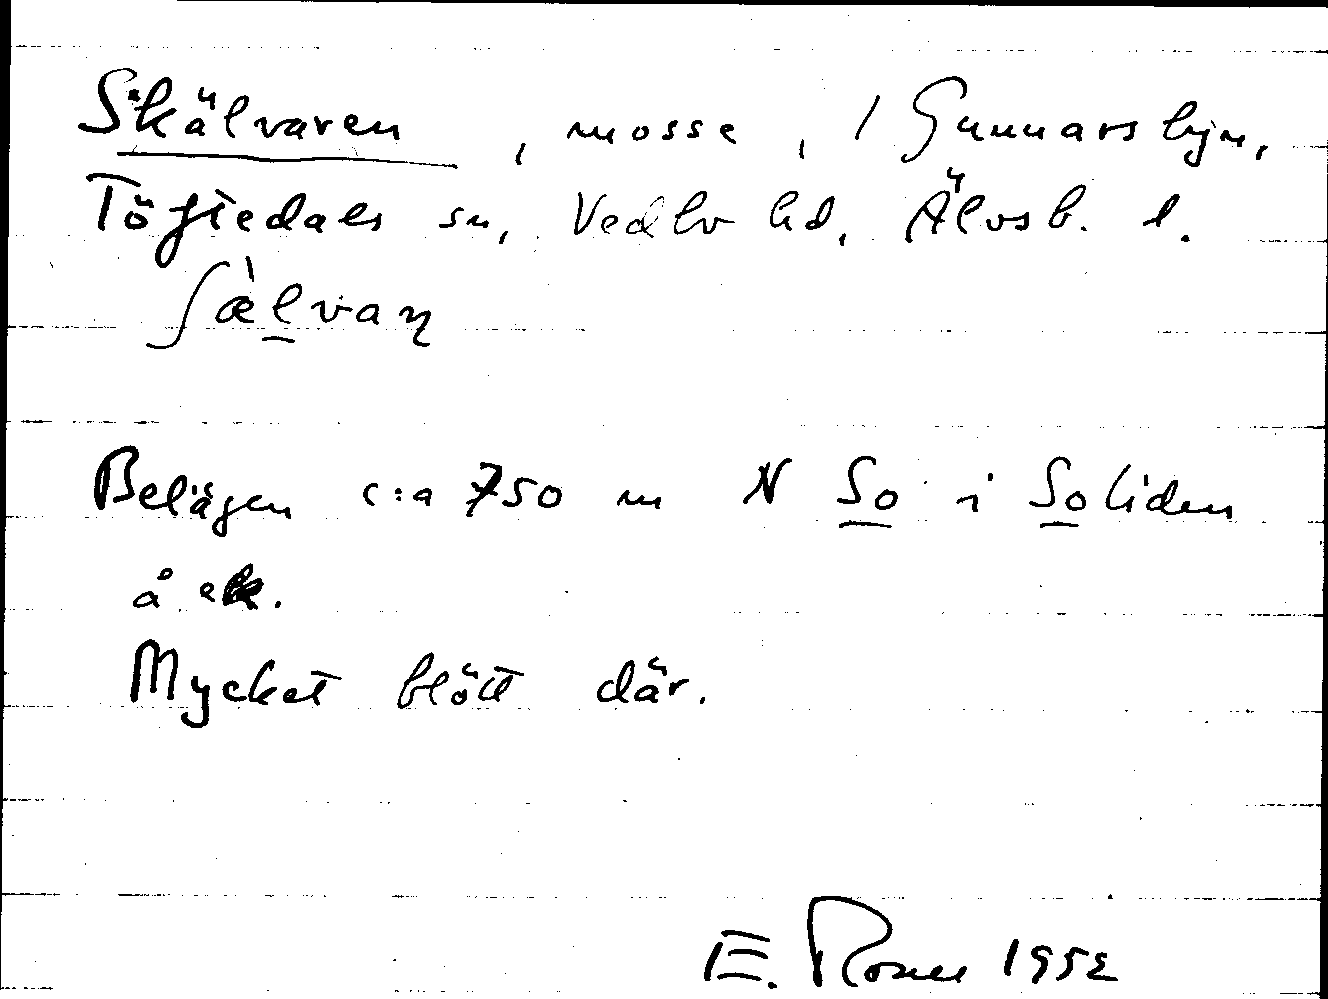 Skälvaren, mosse, / Gunnarsbyn,
Töftedals sn, Vedbo hd, Älvsb. l.
ʃæ̀l̲vaɳ
Belägen c:a 750 m N So i Soliden
å ek.
Mycket blött där.
E. Rosell 1952